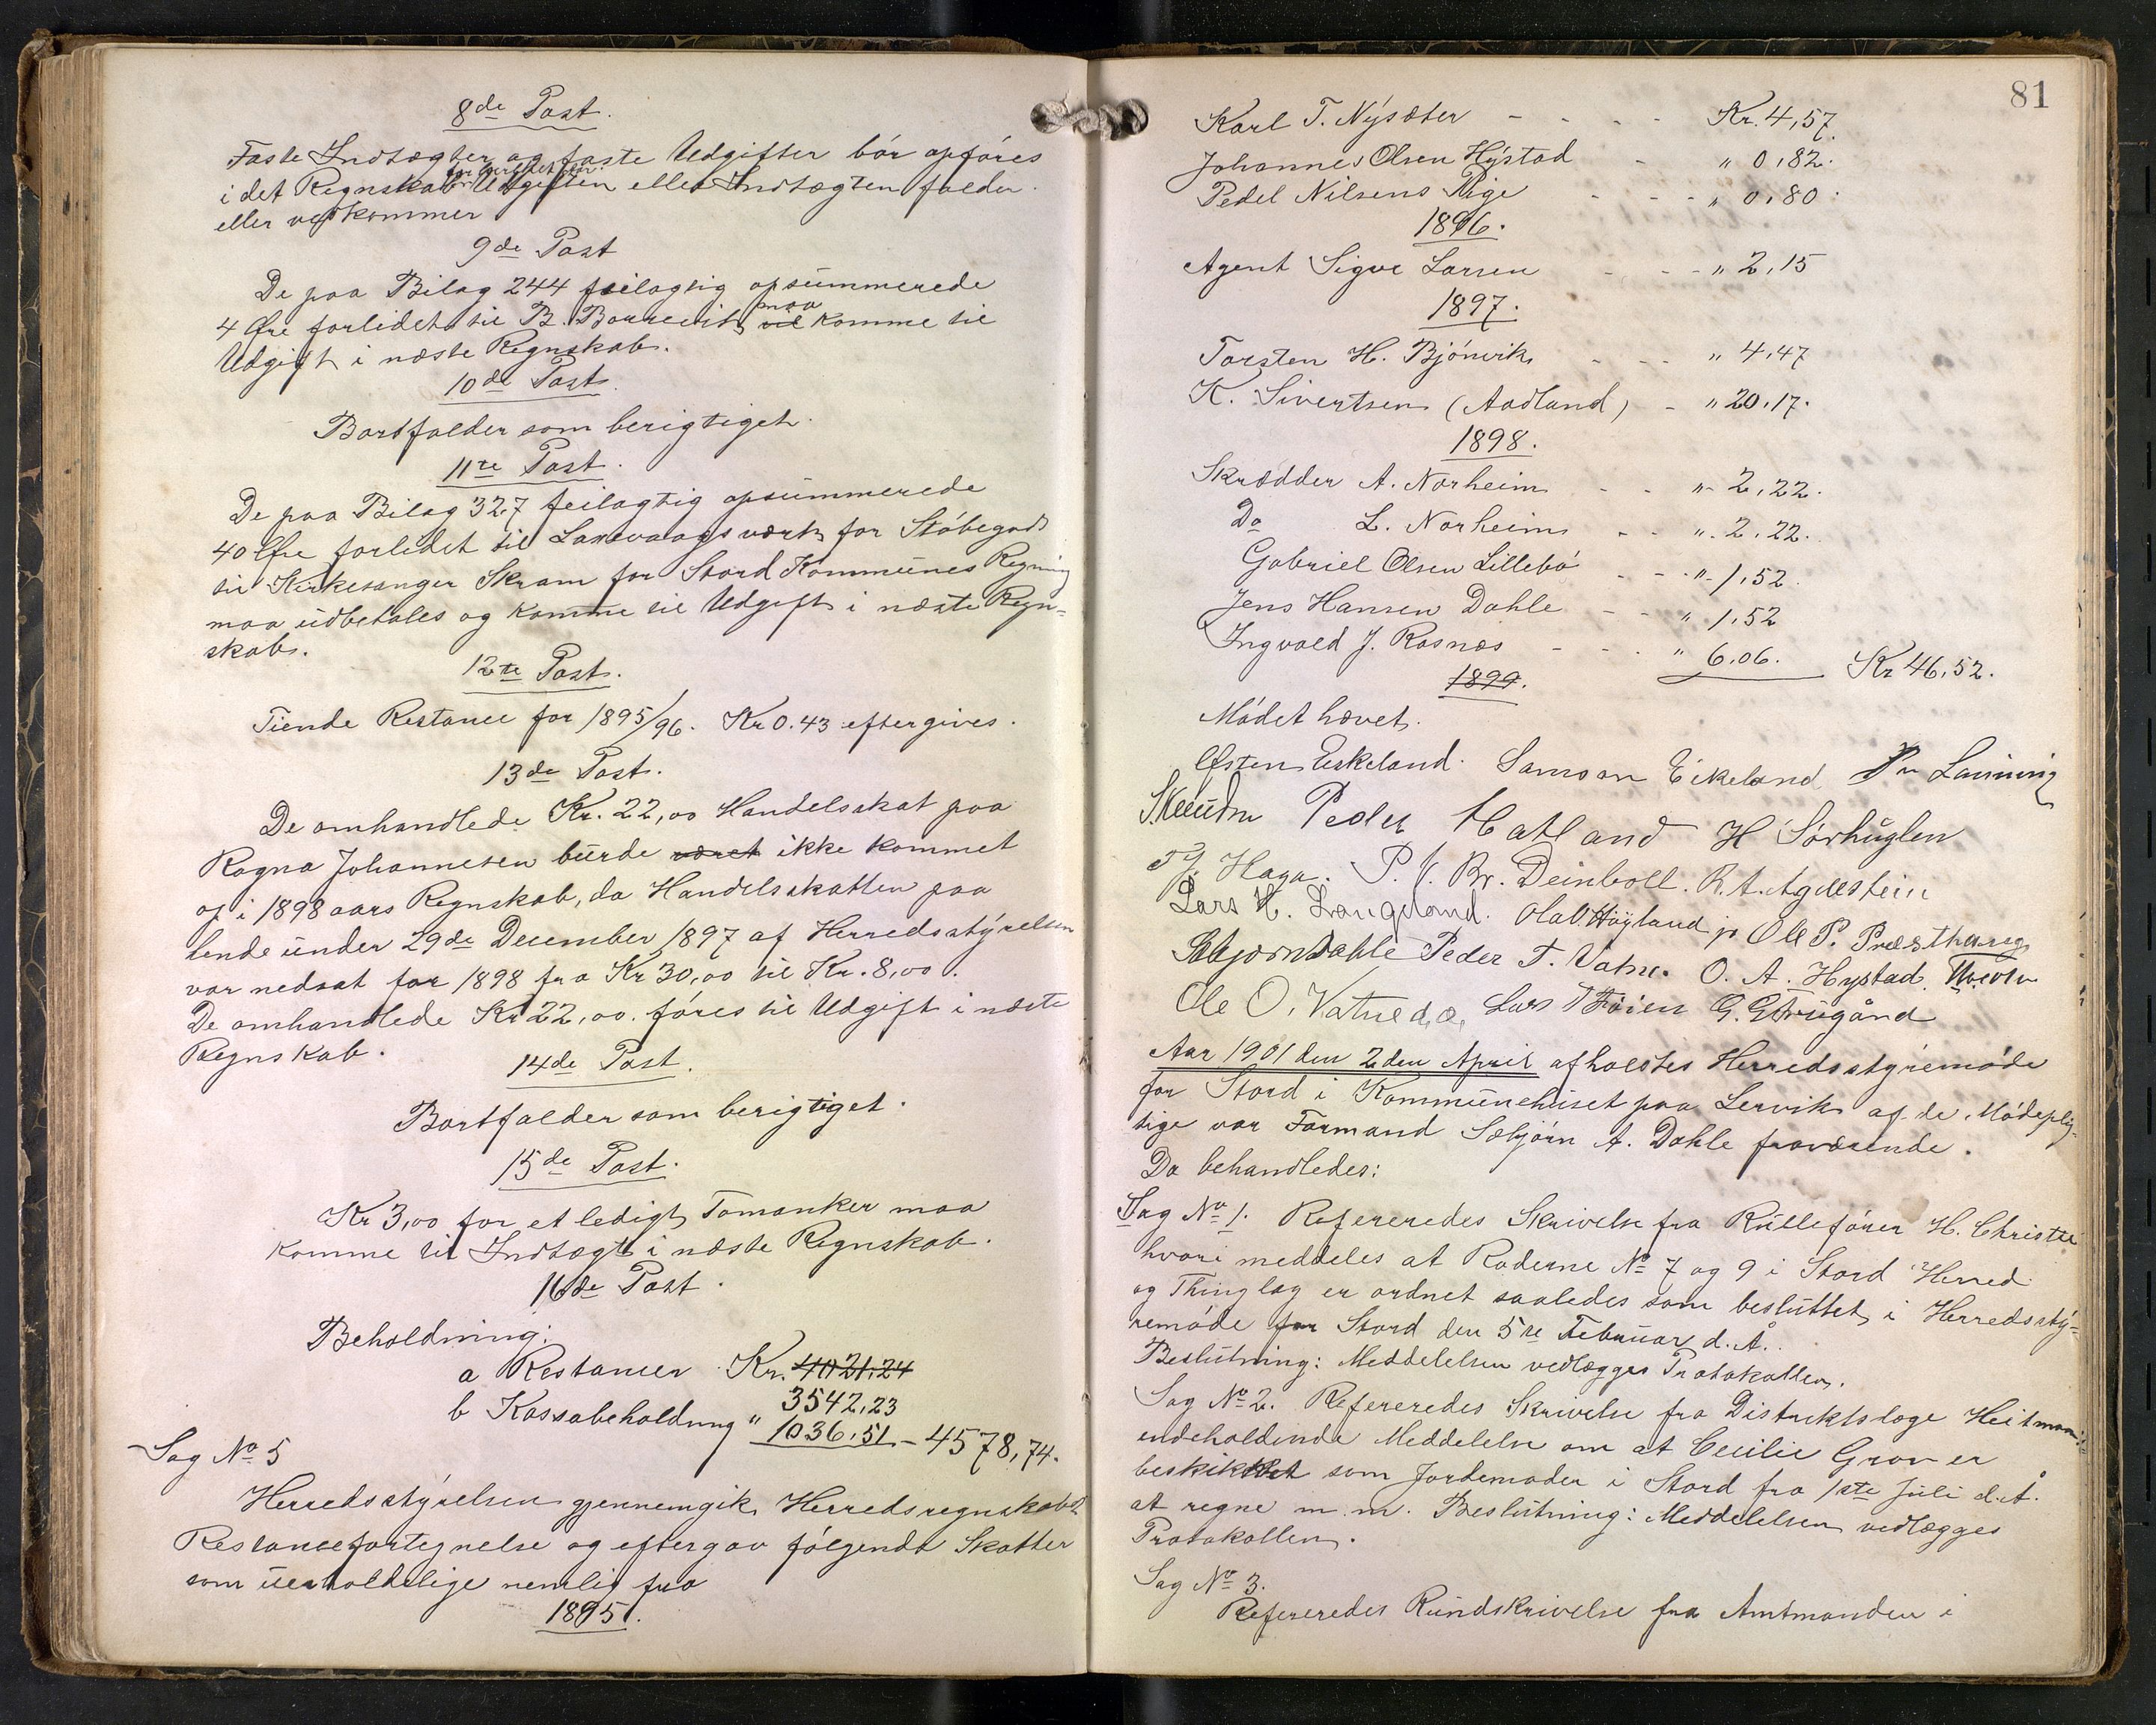 8de Post.
Faste Indtægter og faste Udgifter bør opføres
i det Regnskab for hvilket Aar Udgiften eller Indtægten falder
eller vedkommer
9de Post
De paa Bilag 244 feilagtig opsummerede
4 Øre forlidet til B. maa vil komme til
Udgift i næste Regnskab.
10de Post.
Bortfalder som berigtiget.
11te Post.
De paa Bilag 327 feilagtig opsummerede
40 Øre forlidet til Laxevaagsværk for Støbegods
til Kirkesanger Skram for Stord Kommunes Regning
maa udbetales og komme til Udgift i næste Regn-
skab.
12te Post.
Tiende Restance for 1895/96. Kr 0.43 eftergives.
13de Post.
De omhandlede Kr. 22,00 Handelsskat paa
Ragna Johannesen burde været ikke kommet
op i 1898 aars Regnskab, da Handelsskatten paa
hende under 29de December 1897 af Herredsstyrelsen
var nedsat for 1898 fra Kr 30,00 til Kr. 8,00.
De omhandlede Kr 22,00. føres til Udgift i næste
Regnskab.
14de Post.
Bortfalder som berigtiget.
15de Post.
Kr 3,00 for et ledigt Tomanker maa
komme til Indtægt i næste Regnskab.
16de Post.
Beholdning:
a Restancer Kr. 4021,24
3542,23
b Kassabeholdning " 1036,51 - 4578,74.
Sag No 5
Herredsstyrelsen gjennemgik Herredsregnskabets
Restancefortegnelse og eftergav følgende Skatter
som uerholdelige nemlig fra
1895.
81
Karl T. Nysæter - - - - Kr. 4,57.
Johannes Olsen Hystad - " 0,82.
Pedel Nilsens Pige - - - " 0,80.
1896.
Agent Sigve Larsen - - - " 2,15
1897.
Torsten H. Bjønvik - - - " 4,47
K. Sivertsen (Aadland) - " 20,17.
1898.
Skrædder A. Norheim - - " 2,22.
Do L. Norheim - - " 2,22.
Gabriel Olsen Lillebø - - " 1,52.
Jens Hansen Dahle - - " 1,52
Ingvald J. Rosnæs - - - " 6,06. Kr 46,52.
1899.
Mødet hævet.
Østen Eskeland. Samson Eikeland
Peder Hatland H Sørhuglen
Haga. P. V. Br. Deinboll. R. A. Agdestein
Lars H. Langeland. Ola O. Høyland jr Ole P. Præsthaug
Sebjørn Dahle Peder T. Vatne. O. A. Hystad.
Ole O. Vatne d.æ. Lars T Føien G.
Aar 1901 den 2den April afholdtes Herredsstyremøde
for Stord i Kommunehuset paa Lervik af de Mødeplig-
tige var Formand Sebjørn A. Dahle fraværende.
Da behandledes:
Sag No 1. Refereredes Skrivelse fra Rullefører H. Christie
hvori meddeles at Roderne No 7 og 9 i Stord Herred
og Thinglag er ordnet saaledes som besluttet i Herredssty-
remøde for Stord den 5te Februar d. Å.
Beslutning: Meddelelsen vedlægges Protokollen.
Sag No 2. Refereredes Skrivelse fra Distriktslæge Heitmann
indeholdende Meddelelse om at Cecilie Gron er
beskikket som Jordemoder i Stord fra 1ste Juli d. Å.
at regne m. m. Beslutning: Meddelelsen vedlægges
Protokollen.
Sag No 3.
Refereredes Rundskrivelse fra Amtmanden i